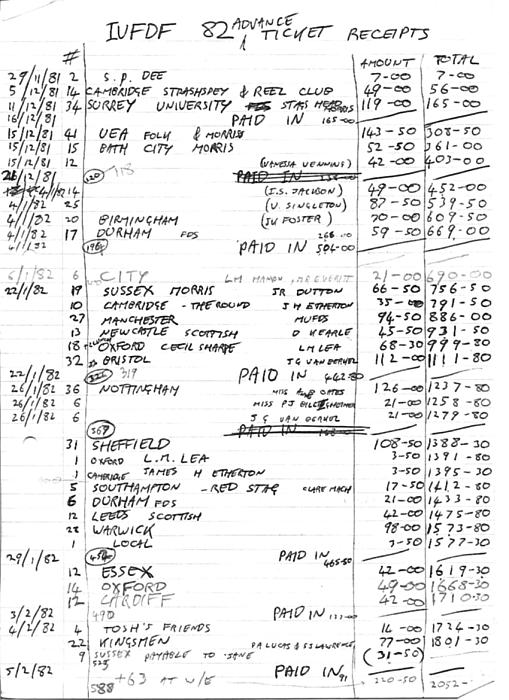 IVFDF 82 ADVANCE TICKET RECEIPTS
# AMOUNT TOTAL
29/11/81 2 S.P. DEE 7-00 7-00
5/12/81 14 CAMBRIDGE STRATHSPEY & REEL CLUB 49-00 56-00
11/12/81 34 SURREY UNIVERSITY STAGS HEAD MORRIS 119-00 165-00
16/12/81 PAID IN 165-00
15/12/81 41 UEA FOLK & MORRIS 143-50 308-50
15/12/81 15 BATH CITY MORRIS 52-50 361-00
15/12/81 12 (VANESSA VENNING) 42-00 403-00
12/81 120 118 PAID IN
4/1/82 14 (I.S. JALLON) 49-00 452-00
4/1/82 25 (V. SINGLETON) 87-50 539-50
4/1/82 20 BIRMINGHAM (IV FOSTER) 70-00 609-50
4/1/82 17 DURHAM FDS 59-50 669-00
PAID IN 504-00
6/1/82 6 CITY 21-00 690-00
22/1/82 19 SUSSEX MORRIS SR DUTTON 66-50 756-50
10 CAMBRIDGE - THE ROUND JH ETHERTON 35-00 791-50
27 MANCHESTER MUFDS 94-50 886-00
13 NEWCASTLE SCOTTISH D KEARLE 45-50 931-50
18 OXFORD CECIL SHARPE LM LEA 68-30 999-80
32 BRISTOL JG VAN OERKEL 112-00 1111-80
22/1/82 319 PAID IN 442-80
26/1/82 36 NOTTINGHAM MISS OATES 126-00 1237-80
26/1/82 6 MISS PJ 21-00 1258-80
26/1/82 6 JG VAN OERKEL 21-00 1279-80
367 PAID IN
31 SHEFFIELD 108-50 1388-30
1 OXFORD L.M. LEA 3-50 1391-80
1 CAMBRIDGE JAMES H ETHERTON 3-50 1395-30
5 SOUTHAMPTON - RED STAG CLARE MACH 17-50 1412-80
6 DURHAM FDS 21-00 1433-80
12 LEEDS SCOTTISH 42-00 1475-80
28 WARWICK 98-00 1573-80
1 LOCAL 3-50 1577-30
29/1/82 454 PAID IN 465-50
12 ESSEX 42-00 1619-30
14 OXFORD 49-00 1668-30
12 CARDIFF 42-00 1710-30
3/2/82 490 PAID IN 133-00
4/2/82 4 TOSH'S FRIENDS 14-00 1724-30
22 KINGSMEN PA LUCAS & SJ LAWRENCE 77-00 1801-30
9 SUSSEX PAYABLE TO JANE (31-50)
525
5/2/82 PAID IN 91
588 +63 AT W/E 220-50 2052-